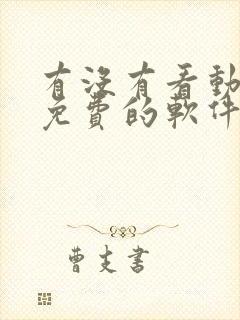 有沒有看動
免費的軟件
曹支書